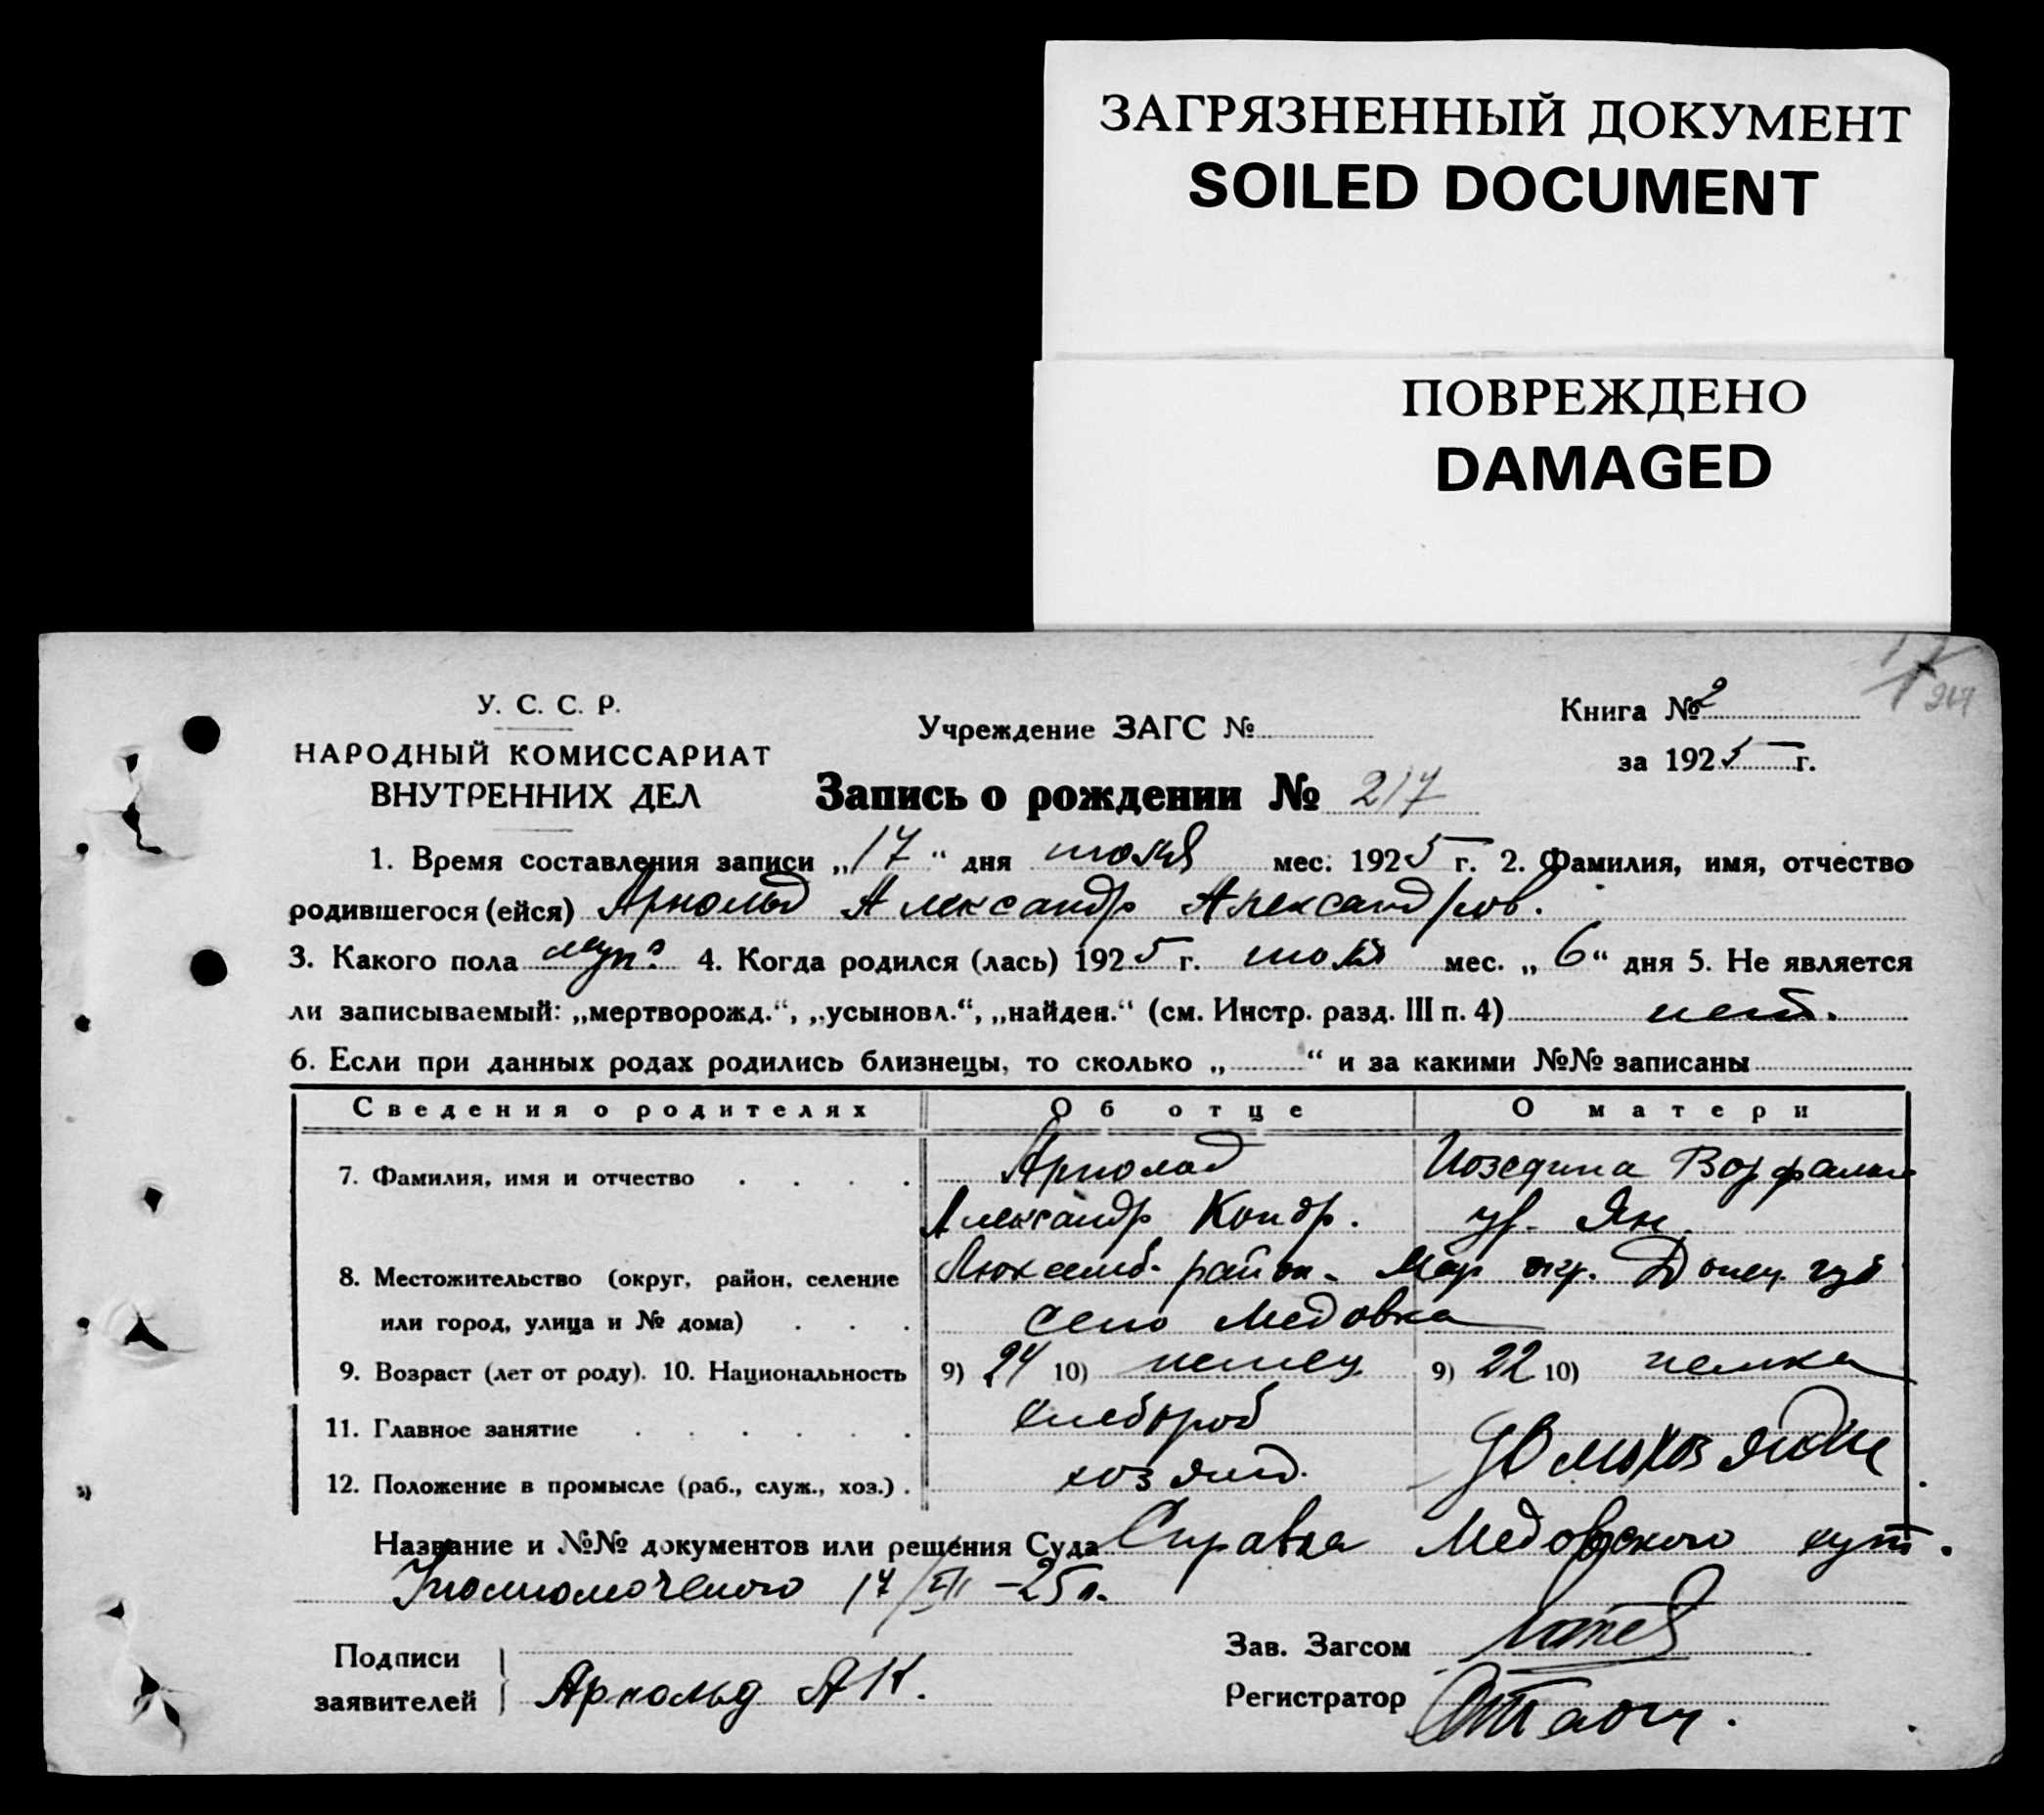 ЗАГРЯЗНЕННЫЙ ДОКУМЕНТ
SOILED DOCUMENT
ПОВРЕЖДЕНО
DAMAGED
217
У. С. С. Р.
НАРОДНЫЙ КОМИССАРИАТ
ВНУТРЕННИХ ДЕЛ
Учреждение ЗАГС №
Книга № 2
за 1925 г.
Запись о рождении № 217
1. Время составления записи „17“ дня июля мес. 1925 г. 2. Фамилия, имя, отчество
родившегося (ейся) Арнольд Александр Александров.
3. Какого пола муж. 4. Когда родился (лась) 1925 г. июля мес. „6“ дня 5. Не является
ли записываемый: „мертворожд.“, „усыновл.“, „найден.“ (см. Инстр. разд. III п. 4) нет.
6. Если при данных родах родились близнецы, то сколько „ “ и за какими №№ записаны
Сведения о родителях Об отце О матери
7. Фамилия, имя и отчество Арнольд Иозефина Варфалом
Александр Кондр. ур. Ян.
8. Местожительство (округ, район, селение Люксемб. район. Мар окр. Донец. губ
или город, улица и № дома) село Медовка
9. Возраст (лет от роду). 10. Национальность 9) 24 10) немец 9) 22 10) немка
11. Главное занятие хлебороб
12. Положение в промысле (раб., служ., хоз.) хозяин. домохозяйка
Название и №№ документов или решения Суда Справка Медовского хут.
Уполномоченого 17/VII–25 г.
Подписи
заявителей Арнольд АК.
Зав. Загсом
Регистратор